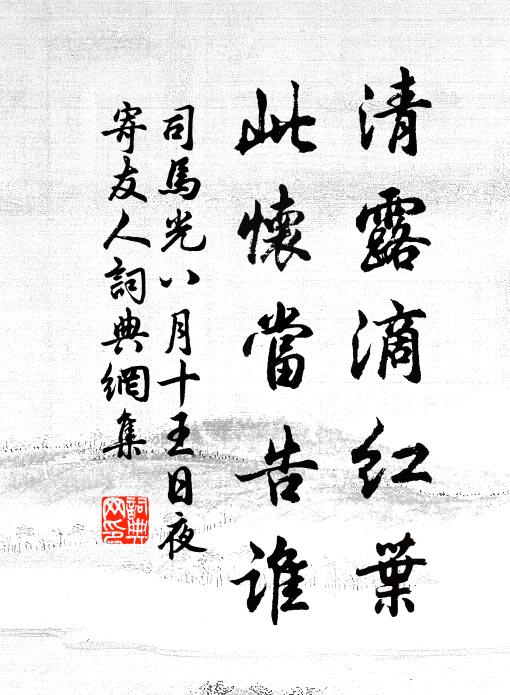 清露滴紅葉
此懷當告誰
司馬光八月十五日夜
寄友人詞典網集
詞典
网印